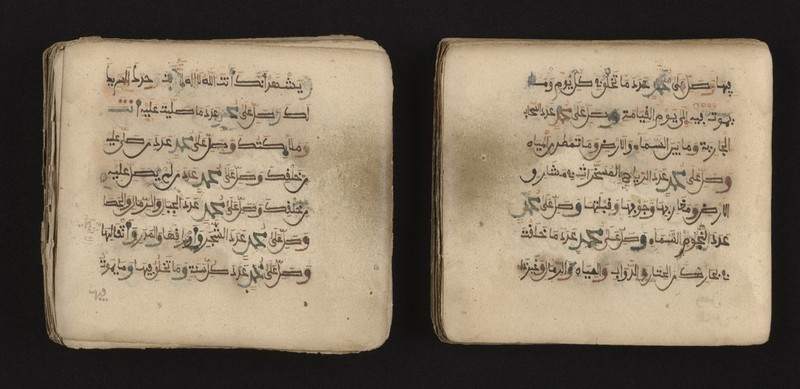 ويشهد أنك انت الله لا اله الا وحدك لا شريك
لك وصل على محمد عدد ما صليت عليه أنت
وملايكتك وصل على محمد عدد من صلى عليه
من خلقك وصل على محمد عدد من لم يصل عليه
من خلقك وصل على محمد عدد الجبال والرمال والحصا
وصل على محمد عدد الشجر وأوراقها والمدر وأثقالها
وصل على محمد عدد كل سنة وما تخلق فيها وما يموت
فيها
فيها وصل على محمد عدد ما تخلق فيه كل يوم وما
يموت فيه إلى يوم القيامة وصل على محمد عدد السحاب
الجارية وما بين السماء والارض وما تمطر من المياه
وصل على محمد عدد الرياح المسخرات في مشارق
الارض ومغاربها وجوفها وقبلتها وصل على محمد
عدد نجوم السماء وصل على محمد عدد ما خلقت
في بحارك من الحيتان والدواب والمياه والرمال وغير